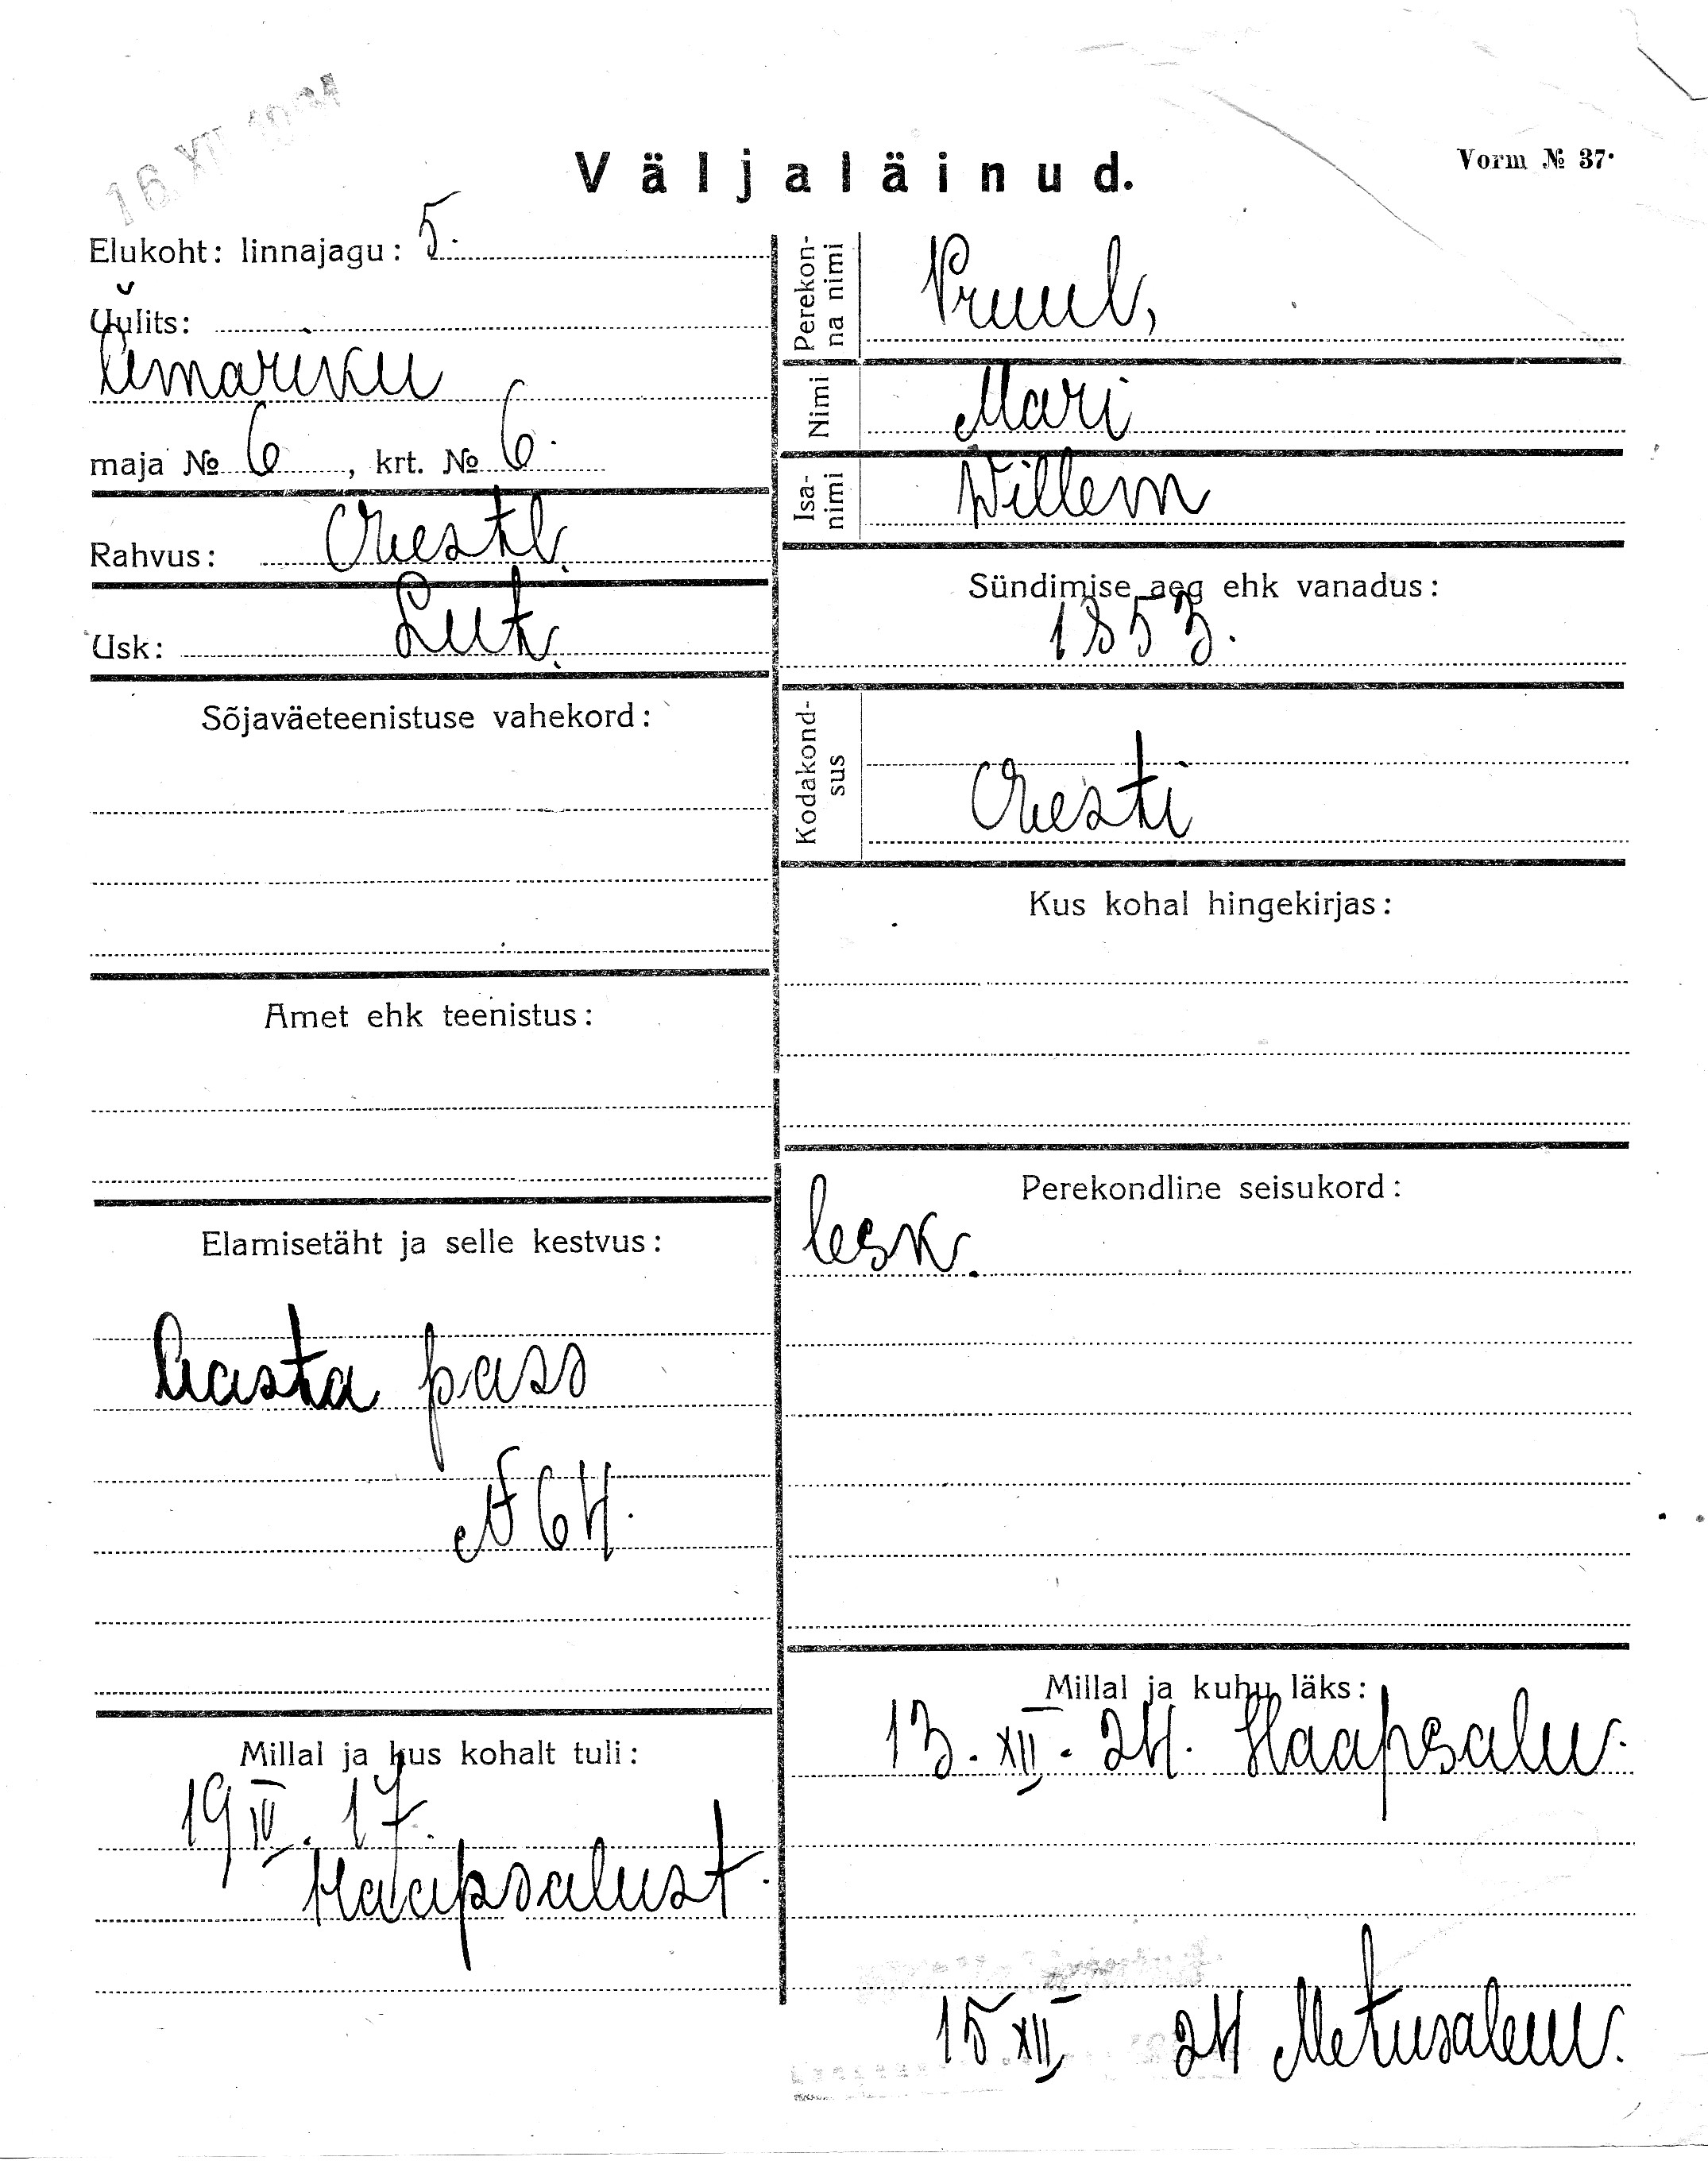 16 XII 1924
Väljaläinud.
Vorm № 37.
Elukoht: linnajagu: 5.
Uulits:
Amariku
maja № 6, krt. № 6.
Rahvus: Eestl.
Usk: Lut.
Sõjaväeteenistuse vahekord:
Amet ehk teenistus:
Elamisetäht ja selle kestvus:
Aasta pass
№ 64.
Millal ja kus kohalt tuli:
19 IV. 17.
Haapsalust.
Perekon-
na nimi
Pruul,
Nimi
Mari
Isa-
nimi
Willem
Sündimise aeg ehk vanadus:
1853.
Kodakond-
sus
Eesti
Kus kohal hingekirjas:
Perekondline seisukord:
lesk.
Millal ja kuhu läks:
13. XII. 24. Haapsalu.
15 XII 24